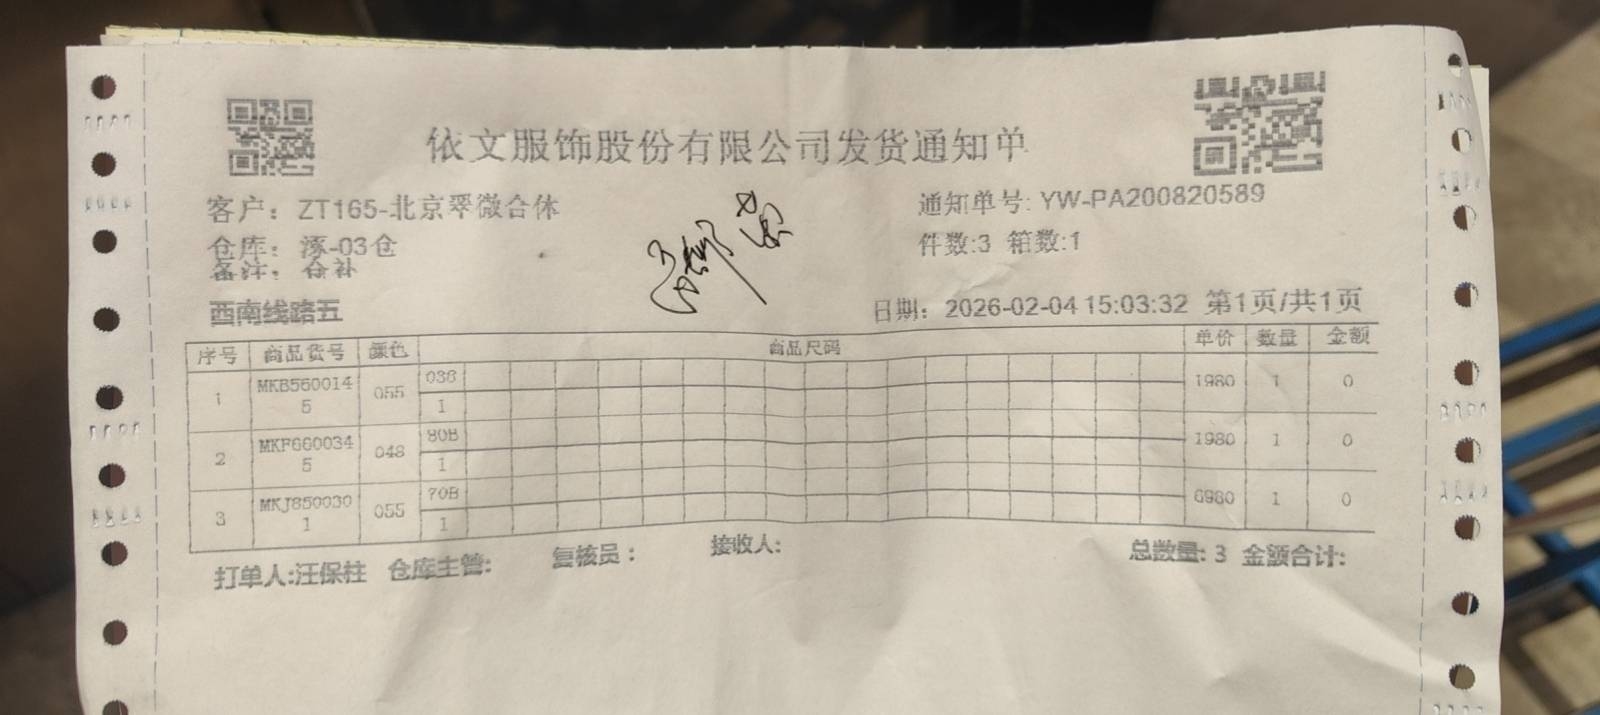 依文服饰股份有限公司发货通知单
客户：ZT165-北京翠微合体
通知单号: YW-PA200820589
仓库：涿-03仓
件数:3 箱数:1
备注：仓补
西南线路五
日期：2026-02-04 15:03:32 第1页/共1页
序号 商品货号 颜色 商品尺码 单价 数量 金额
1 MKB5600145 055 1980 1 0
1
2 MKF6600345 048 80B 1980 1 0
1
3 MKJ8500301 055 70B 6980 1 0
1
打单人:汪保柱 仓库主管: 复核员： 接收人: 总数量: 3 金额合计: